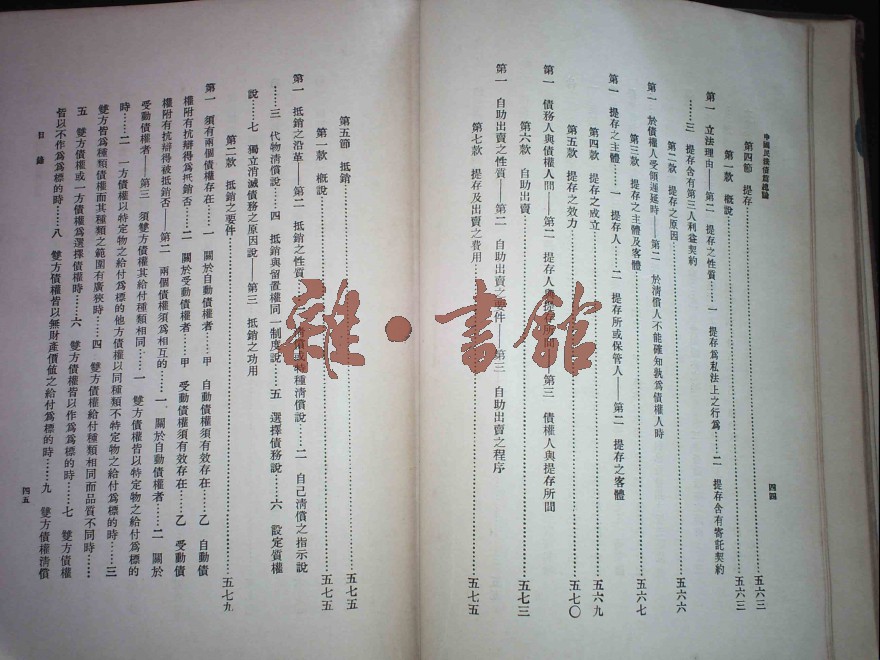 中國民法債篇總論
四四
第四節 提存……五六三
第一款 概說……五六三
第一 立法理由——第二 提存之性質……一 提存爲私法上之行爲……二 提存含有寄託契約
……三 提存含有第三人利益契約
第二款 提存之原因……五六六
第一 於債權人受領遲延時——第二 於清償人不能確知孰爲債權人時
第三款 提存之主體及客體……五六七
第一 提存之主體……一 提存人……二 提存所或保管人——第二 提存之客體
第四款 提存之成立……五六九
第五款 提存之效力……五七〇
第一 債務人與債權人間——第二 提存人與提存所間——第三 債權人與提存所間
第六款 自助出賣……五七三
第一 自助出賣之性質——第二 自助出賣之要件——第三 自助出賣之程序
第七款 提存及出賣之費用……五七五
第五節 抵銷……五七五
第一款 概說……五七五
第一 抵銷之沿革——第二 抵銷之性質……一 清償或特種清償說……二 自己清償之指示說
……三 代物清償說……四 抵銷與留置權同一制度說……五 選擇債務說……六 設定質權
說……七 獨立消滅債務之原因說——第三 抵銷之功用
第二款 抵銷之要件……五七九
第一 須有兩個債權存在……一 關於自動債權者……甲 自動債權須有效存在……乙 自動債
權附有抗辯得爲抵銷否……二 關於受動債權者……甲 受動債權須有效存在……乙 受動債
權附有抗辯得被抵銷否——第二 兩個債權須爲相互的……一 關於自動債權者……二 關於
受動債權者——第三 須雙方債權其給付種類相同……一 雙方債權皆以特定物之給付爲標的
時……二 一方債權以特定物之給付爲標的他方債權以同種類不特定物之給付爲標的時……三
雙方皆爲種類債權而其種類之範圍有廣狹時……四 雙方債權給付種類相同而品質不同時……
五 雙方債權或一方債權爲選擇債權時……六 雙方債權皆以作爲爲標的時……七 雙方債權
皆以不作爲爲標的時……八 雙方債權皆以無財產價值之給付爲標的時……九 雙方債權清償
目錄
四五
雜·書館